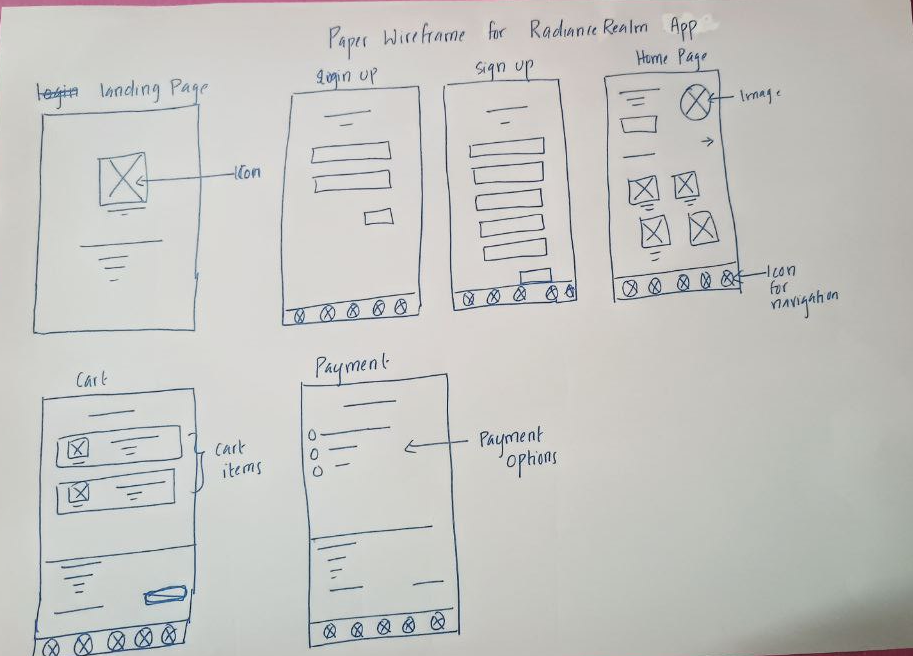 Paper Wireframe for RadianceRealm App
login landing Page
Login up
Sign up
Home Page
Icon
Image
Icon
for
navigation
Cart
Cart
items
Payment
Payment
Options